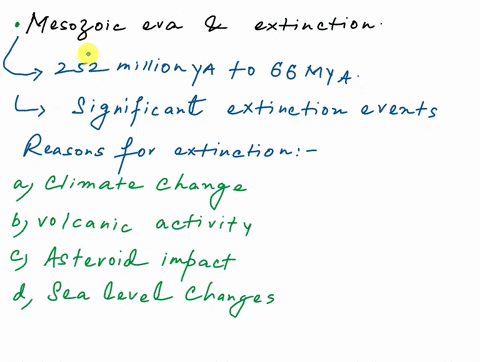 • Mesozoic era & extinction.
↳ 252 million yA to 66 MyA.
↳ Significant extinction events
Reasons for extinction:-
a, Climate change
b, volcanic activity
c, Asteroid impact
d, Sea level changes